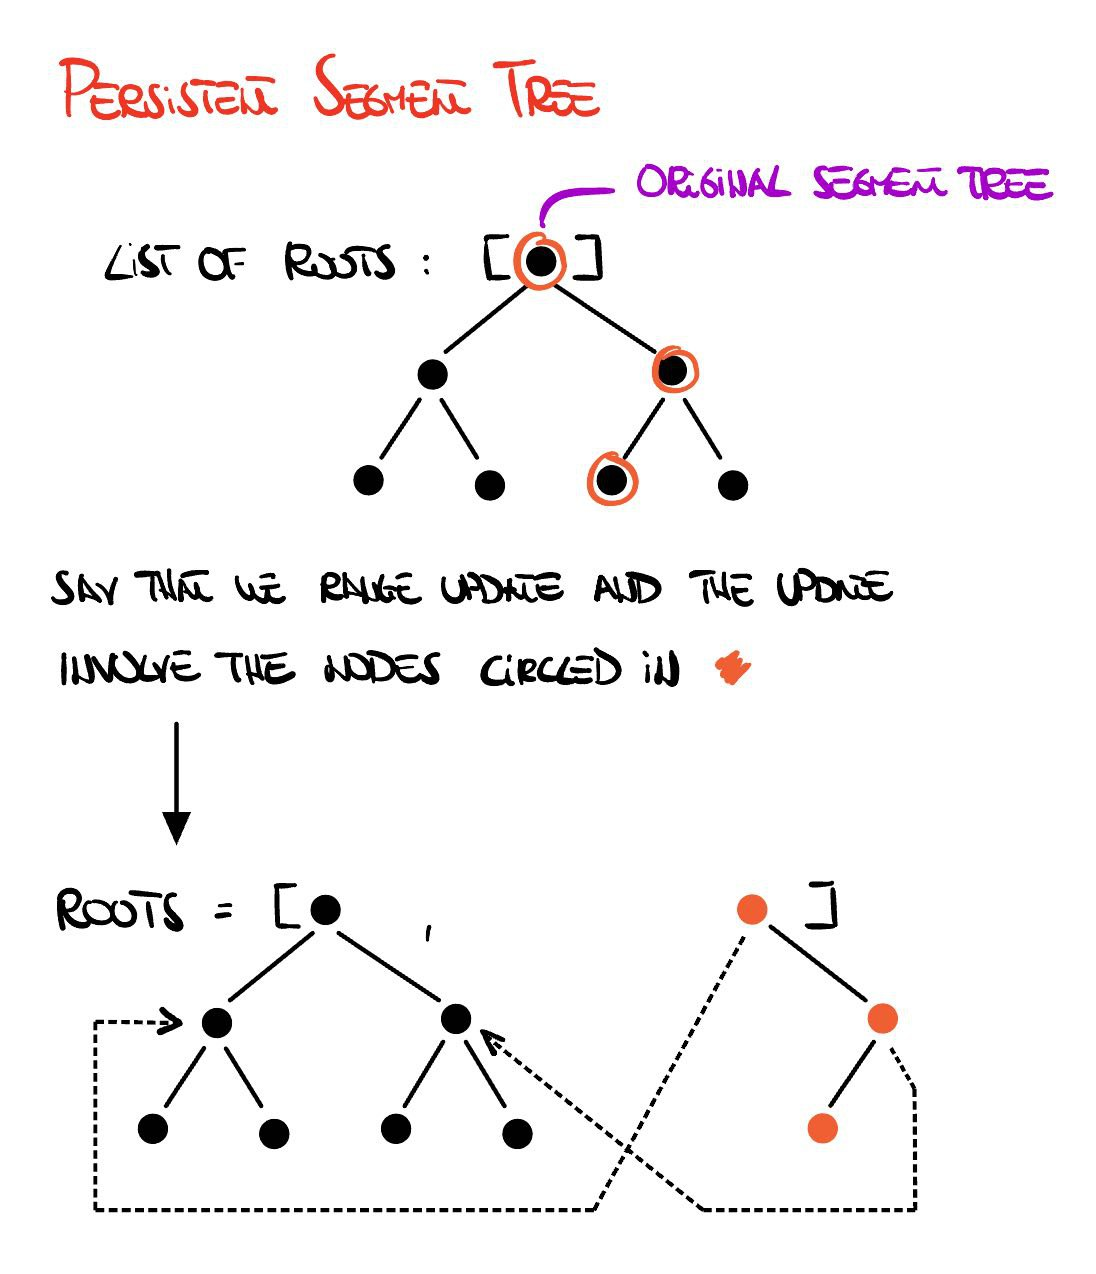 PERSISTENT SEGMENT TREE
ORIGINAL SEGMENT TREE
LIST OF ROOTS : [ ]
SAY THAT WE RANGE UPDATE AND THE UPDATE
INVOLVE THE NODES CIRCLED IN
ROOTS = [ , ]